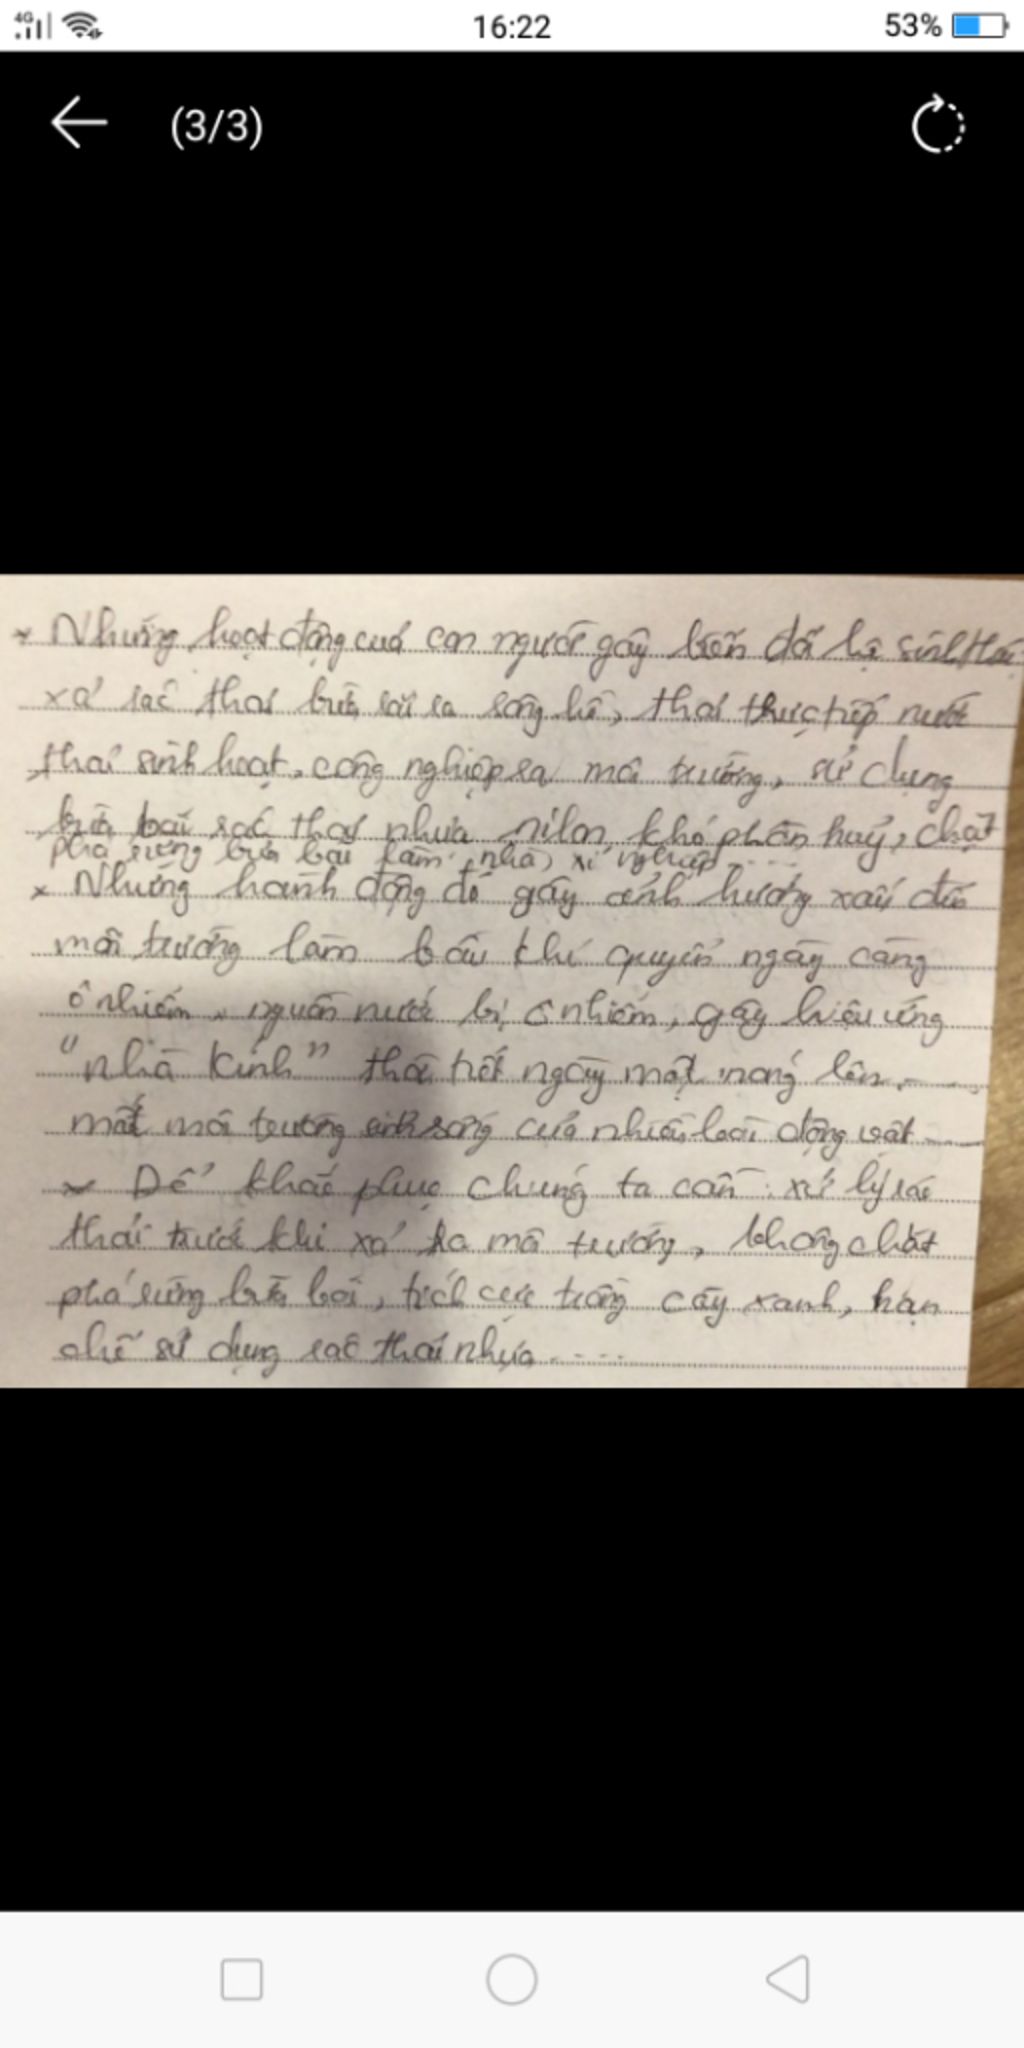 4G 16:22 53%
(3/3)
Những hoạt động của con người gây biến đổi hệ sinh thái
xả rác thải bừa bãi ra sông hồ, thải trực tiếp nước
thải sinh hoạt, công nghiệp ra môi trường, sử dụng
bừa bãi rác thải nhựa nilon khó phân huỷ, chặt
phá rừng bừa bãi làm nhà, xí nghiệp ....
x Những hành động đó gây ảnh hưởng xấu đến
môi trường làm bầu khí quyển ngày càng
ô nhiễm, nguồn nước bị ô nhiễm, gây hiệu ứng
"nhà kính" thời tiết ngày một nóng lên,
mất môi trường sinh sống của nhiều loài động vật
Để khắc phục chúng ta cần: xử lý rác
thải trước khi xả ra môi trường, không chặt
phá rừng bừa bãi, tích cực trồng cây xanh, hạn
chế sử dụng rác thải nhựa ....